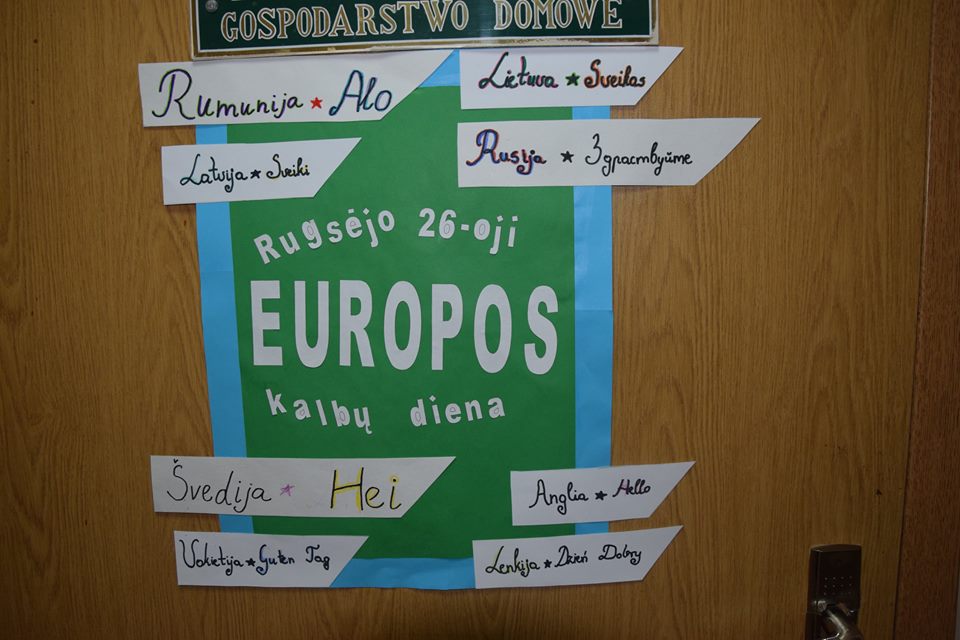 GOSPODARSTWO DOMOWE
Rumunija ★ Alo
Lietuva ★ Sveikas
Latvija ★ Sveiki
Rusija ★ Здраствуйте
Rugsėjo 26-oji
EUROPOS
kalbų diena
Švedija ★ Hei
Anglia ★ Hello
Vokietija ★ Guten Tag
Lenkija ★ Dzień Dobry